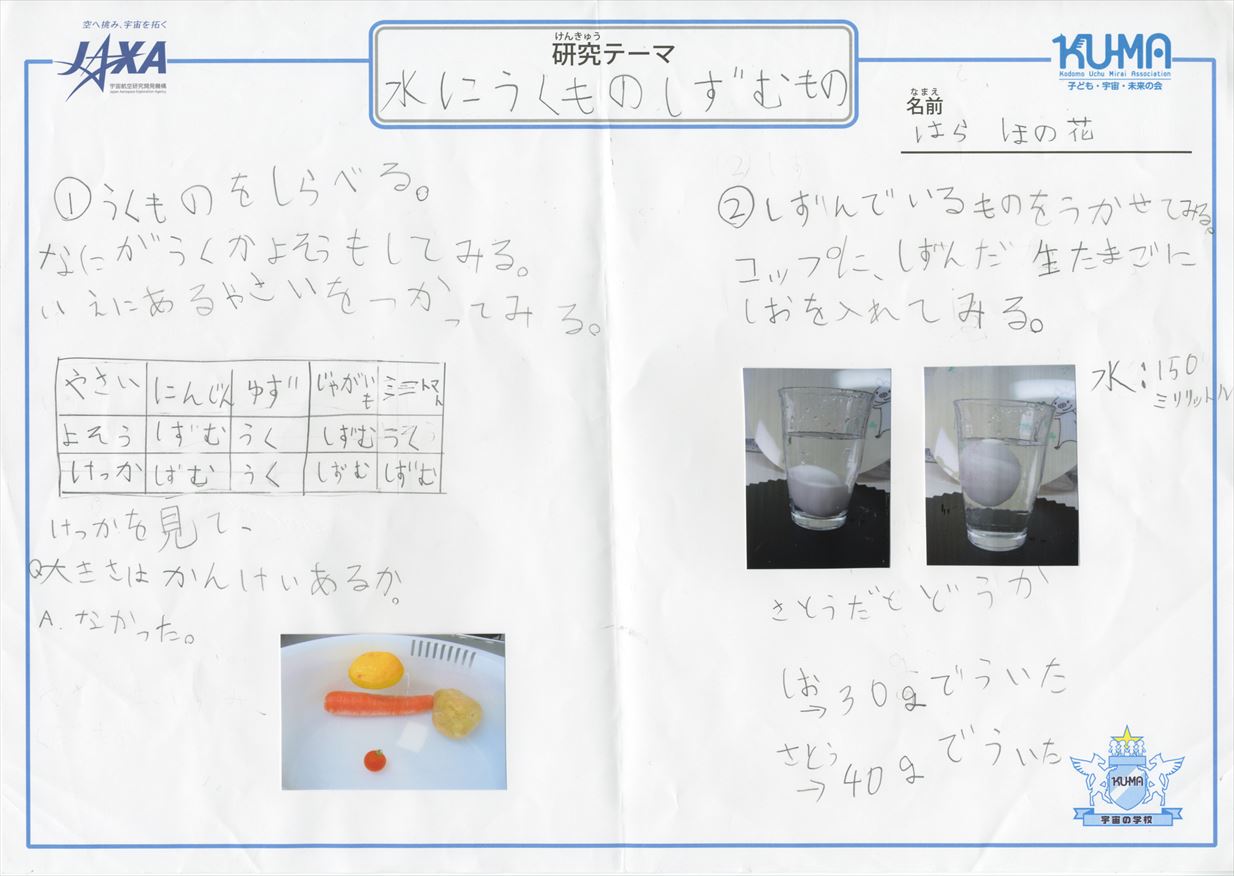 空へ挑み、宇宙を拓く
JAXA
宇宙航空研究開発機構
Japan Aerospace Exploration Agency
けんきゅう
研究テーマ
水にうくものしずむもの
KU-MA
Kodomo Uchu Mirai Association
子ども・宇宙・未来の会
なまえ
名前
はら ほの花
①うくものをしらべる。
なにがうくかよそうもしてみる。
いえにあるやさいをつかってみる。
やさい にんじん ゆず じゃがいも ミニトマト
よそう しずむ うく しずむ うく
けっか しずむ うく しずむ しずむ
けっかを見て、
Q大きさはかんけいあるか。
A.なかった。
②しずんでいるものをうかせてみる。
コップに、しずんだ生たまごに
しおを入れてみる。
水:150
ミリリットル
さとうだとどうか
しお
→30gでういた
さとう
→40gでういた
KU-MA
宇宙の学校